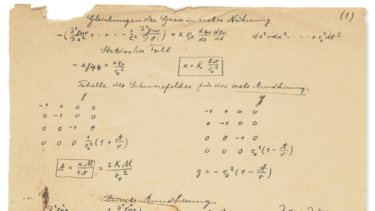 (1)
Gleichungen der Grav. in erster Näherung
-(∂²γμν/∂x² + · · · - 1/c² ∂²γμν/∂t²) = κ ρ₀ dxμ/ds dxν/ds    ds² = dx² · · · - · · · + c₀²dt²
Statischer Fall
- Δγ₄₄ = κρ₀/c₀²    κ = K 8π/c₀²
Tabelle des Schwerefeldes für das erste Annäherung.
γ    g
-1 0 0 0    -1 0 0 0
0 -1 0 0    0 -1 0 0
0 0 -1 0    0 0 -1 0
0 0 0 1/c₀²(1 + A/r)    0 0 0 c₀²(1 - A/r)
A = κM/4π = 2KM/c₀²    g = -c₀²(1 - A/r)
Annäherung.